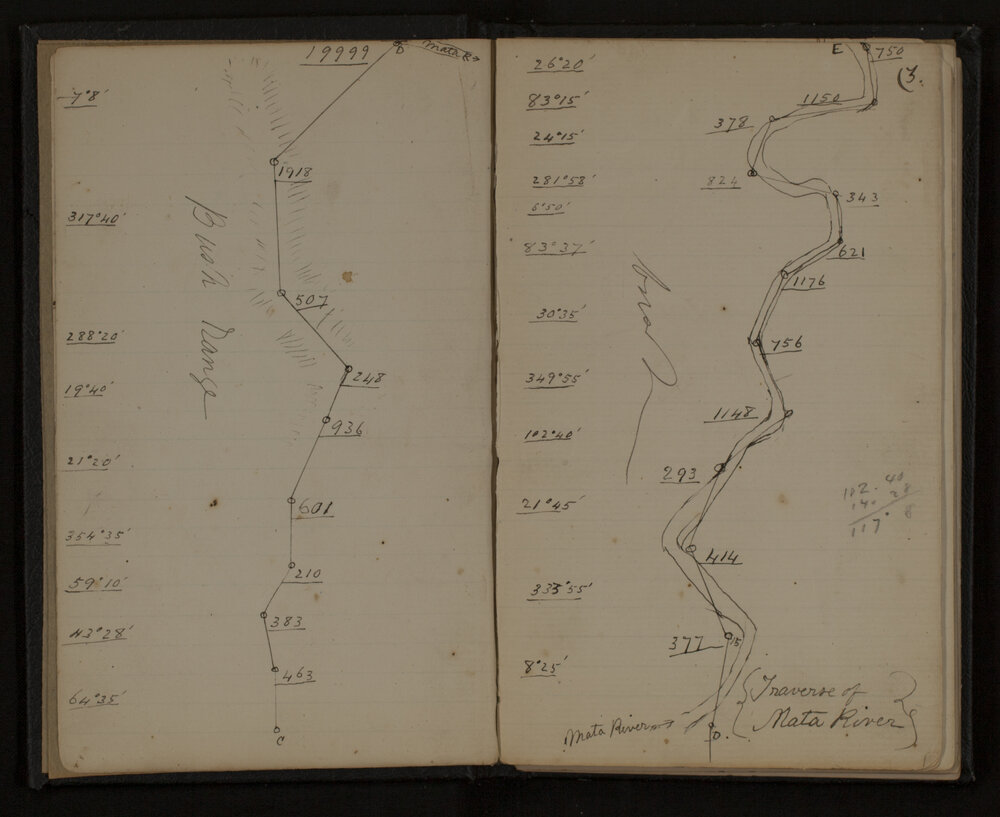 19999
D
Mata R
7°8'
1918
317°40'
Bush Range
507
288°20'
248
19°40'
936
21°20'
601
354°35'
210
59°10'
383
43°28'
463
64°35'
C
E
750
(3.
26°20'
1150
83°15'
378
24°15'
824
281°58'
343
6°50'
621
83°37'
1176
30°35'
756
349°55'
1148
102°40'
293
112.40
21°45'
117° 8
414
335°55'
377
15
8°25'
Traverse of
Mata River
Mata River
D.